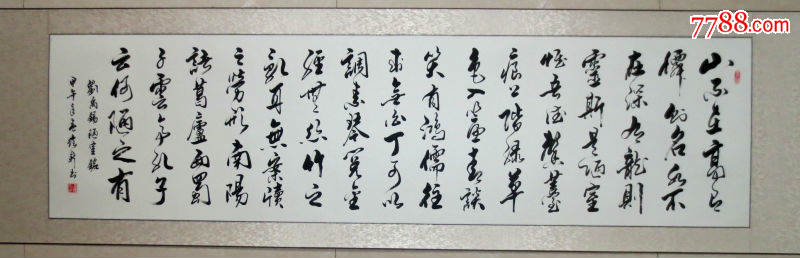 山不在高有
僊则名水不
在深有龍則
靈斯是陋室
惟吾德馨苔
痕上階綠草
色入簾青談
笑有鴻儒往
來無白丁可以
調素琴閱金
經無絲竹之
亂耳無案牘
之勞形南陽
諸葛廬西蜀
子雲亭孔子
云何陋之有
劉禹錫陋室銘
甲午年 書
7788.com